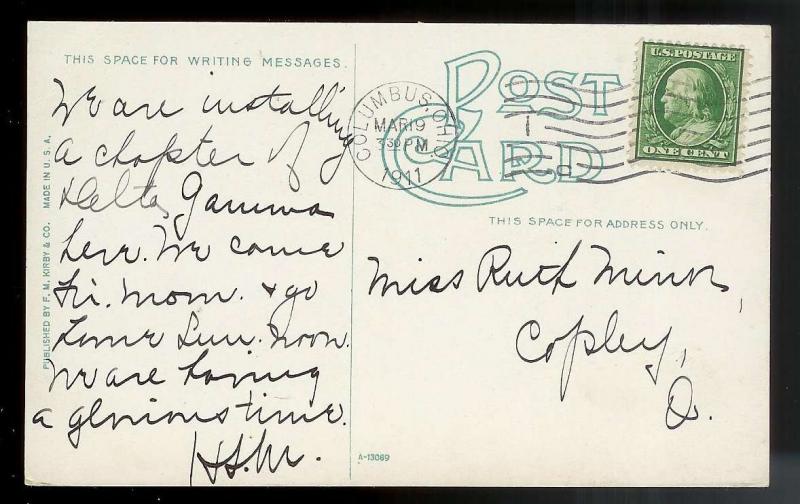 THIS SPACE FOR WRITING MESSAGES.
We are installing
a chapter of
Delta Gamma
here. We come
Fri. morn. & go
home Sun. noon.
We are having
a glorious time.
H.S.M.
PUBLISHED BY F. M. KIRBY & CO. MADE IN U. S. A.
POST
CARD
COLUMBUS, OHIO
MAR 19
330 PM
1911
U.S. POSTAGE
ONE CENT
THIS SPACE FOR ADDRESS ONLY.
Miss Ruth Minor,
Copley,
O.
A-13089